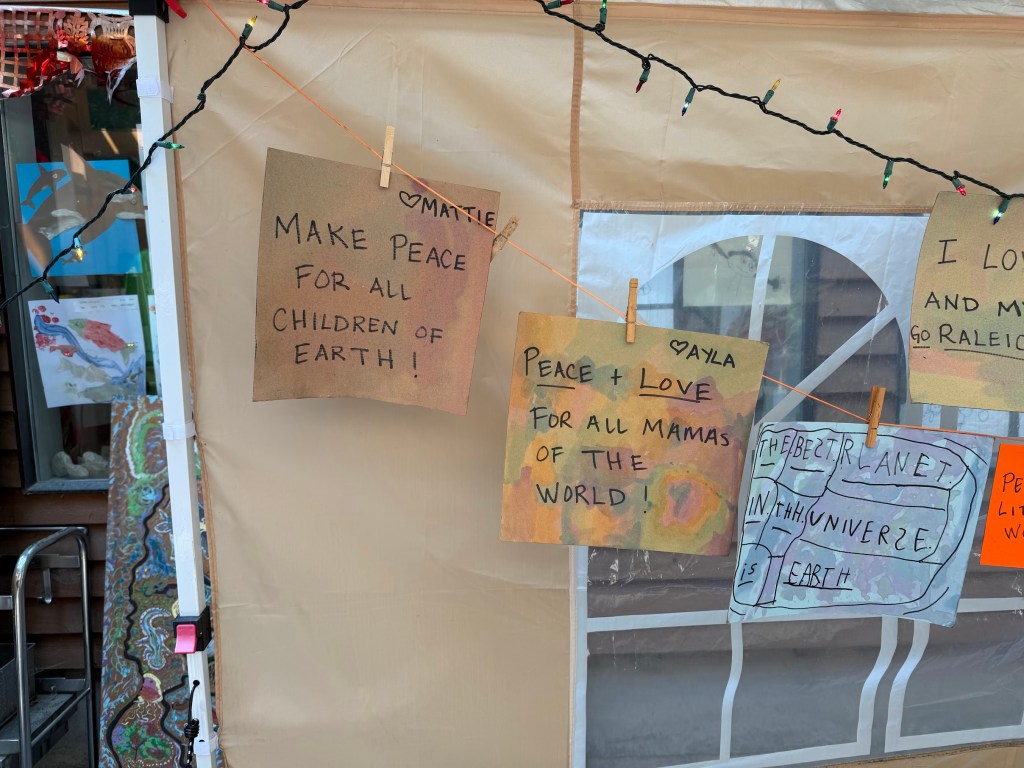 ♡MATTIE
MAKE PEACE
FOR ALL
CHILDREN OF
EARTH!
♡AYLA
PEACE + LOVE
FOR ALL MAMAS
OF THE
WORLD!
THE BEST PLANET.
IN THH UNIVERZE.
is EARTH
I
AND
GO